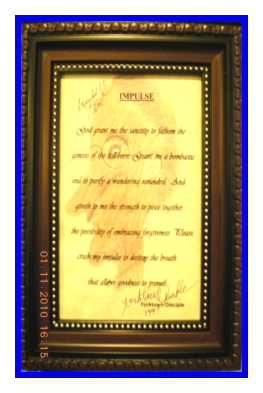 IMPULSE
God grant me the sanctity to fathom the
genesis of the hell-born. Grant me a bombastic
soul to purify a wandering scoundrel. And
giveth to me the strength to piece together
the possibility of embracing forgiveness. Please,
crush my impulse to destroy the breath
that allows goodness to prevail.
Yorktown Disciple
1997
01 11 2010 16:15